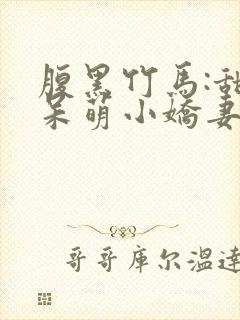 腹黑竹马:甜
呆萌小嬌妻
哥哥库尔温達